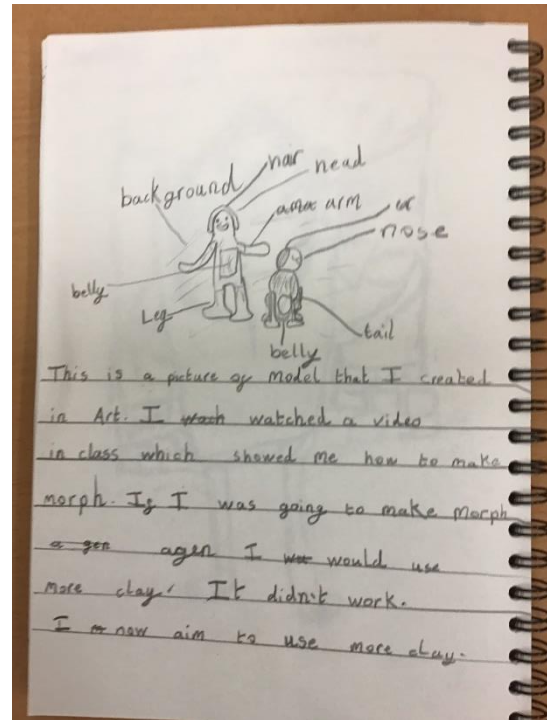 hair
head
background
arm
ur
nose
belly
Leg
tail
belly
This is a picture of model that I created
in Art. I watched a video
in class which showed me how to make
morph. If I was going to make Morph
agen I would use
more clay. It didn't work.
I now aim to use more clay.